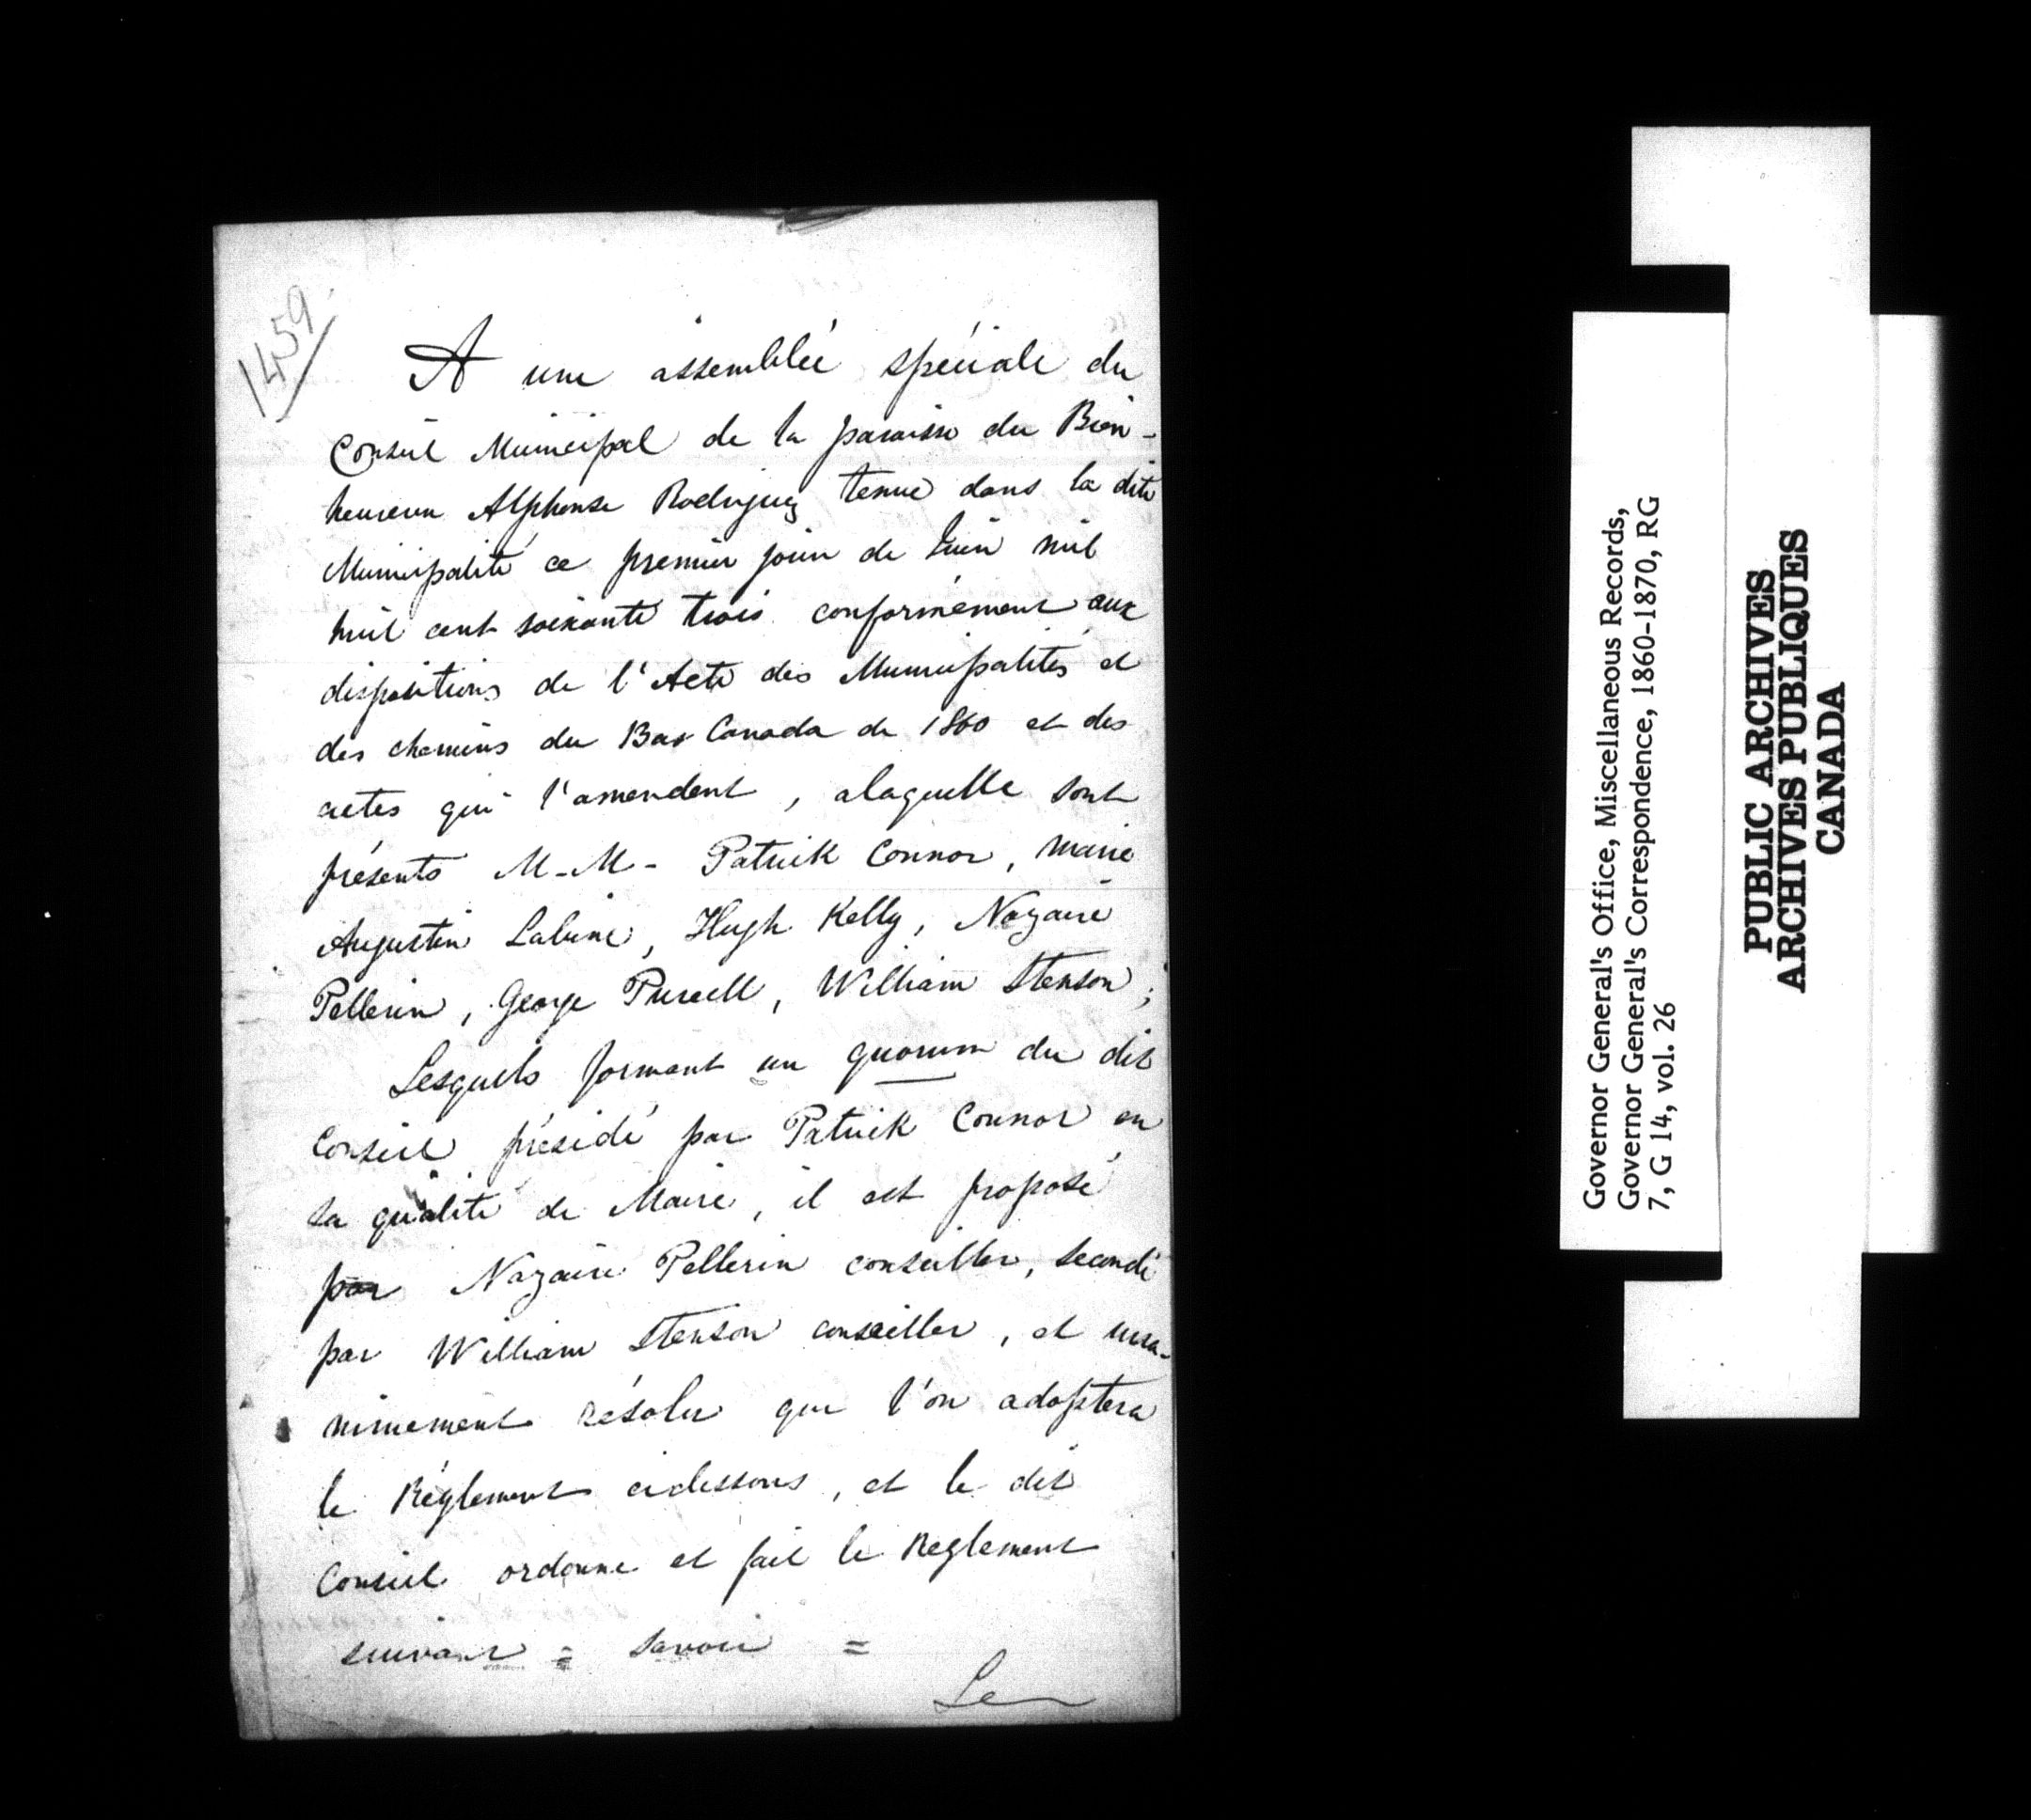 1459
A une assemblée spéciale du
Conseil Municipal de la paroisse du Bien-
heureux Alphonse Rodriguez tenue dans la dite
Municipalité ce premier jour de Juin mil
huit cent soixante trois conformément aux
dispositions de l'Acte des Municipalités et
des chemins du Bas Canada de 1860 et des
actes qui l'amendent, alaquelle sont
présents M-M- Patrick Connor, maire
Augustin Labine, Hugh Kelly, Nazaire
Pellerin, George Purcell, William Stenson;
Lesquels formant un quorum du dit
Conseil présidé par Patrick Connor en
sa qualité de Maire, il est proposé
par Nazaire Pellerin conseiller, secondé
par William Stenson conseiller, et una-
nimement résolu que l'on adoptera
le Réglement cidessous, et le dit
Conseil ordonne et fait le Reglement
suivant = savoir =
Le
Governor General's Office, Miscellaneous Records,
Governor General's Correspondence, 1860-1870, RG
7, G 14, vol. 26
PUBLIC ARCHIVES
ARCHIVES PUBLIQUES
CANADA